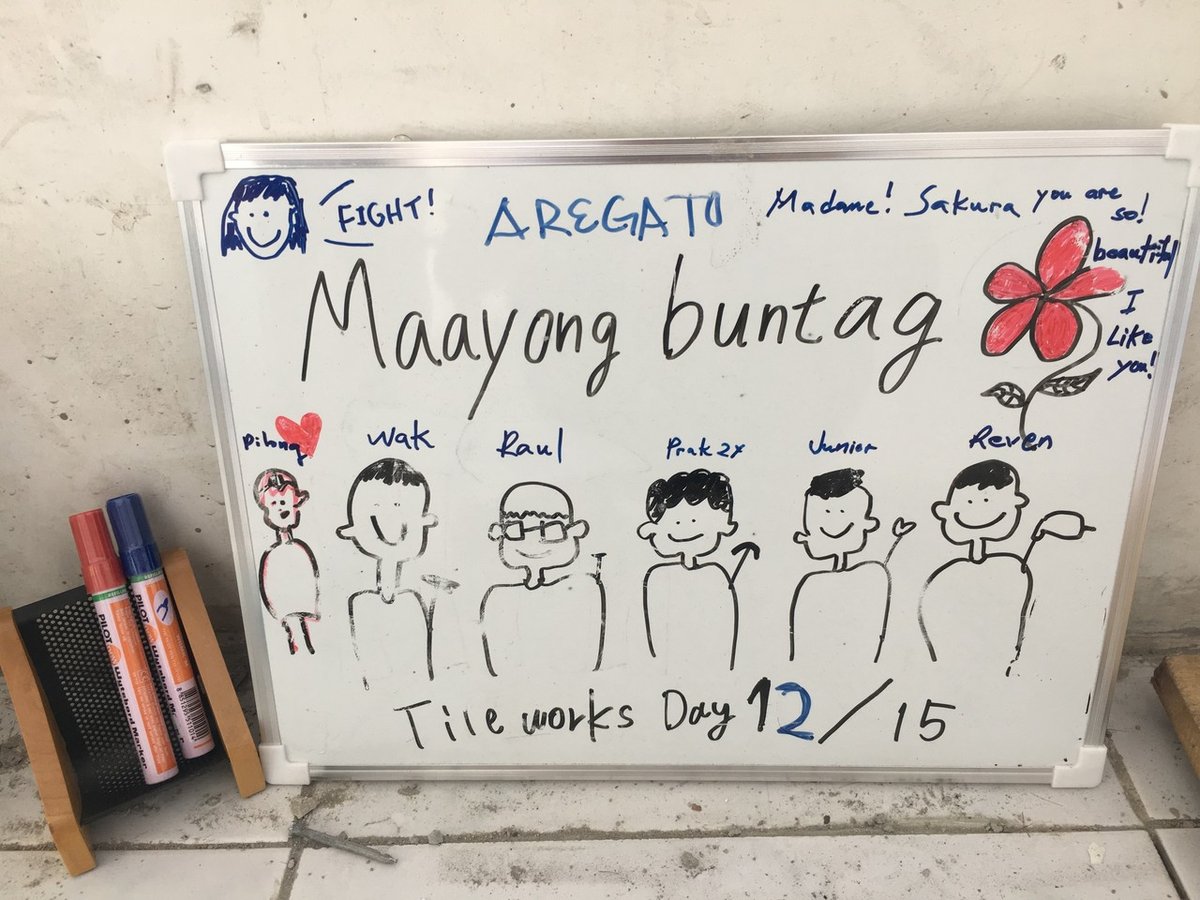 FIGHT!
AREGATO
Madame! Sakura you are
so!
beautiful
I
Like
you!
Maayong buntag
Pilong
Wak
Raul
Prak2x
Junior
Reven
Tile works Day 12/15
PILOT Wyteboard Marker
PILOT